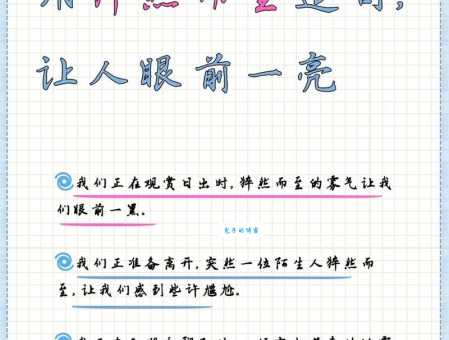 用猝然而至造句，
让人眼前一亮
我们正在观赏日出时，猝然而至的雾气让我
们眼前一黑。
我们正准备离开，突然一位陌生人猝然而
至，让我们感到些许尴尬。